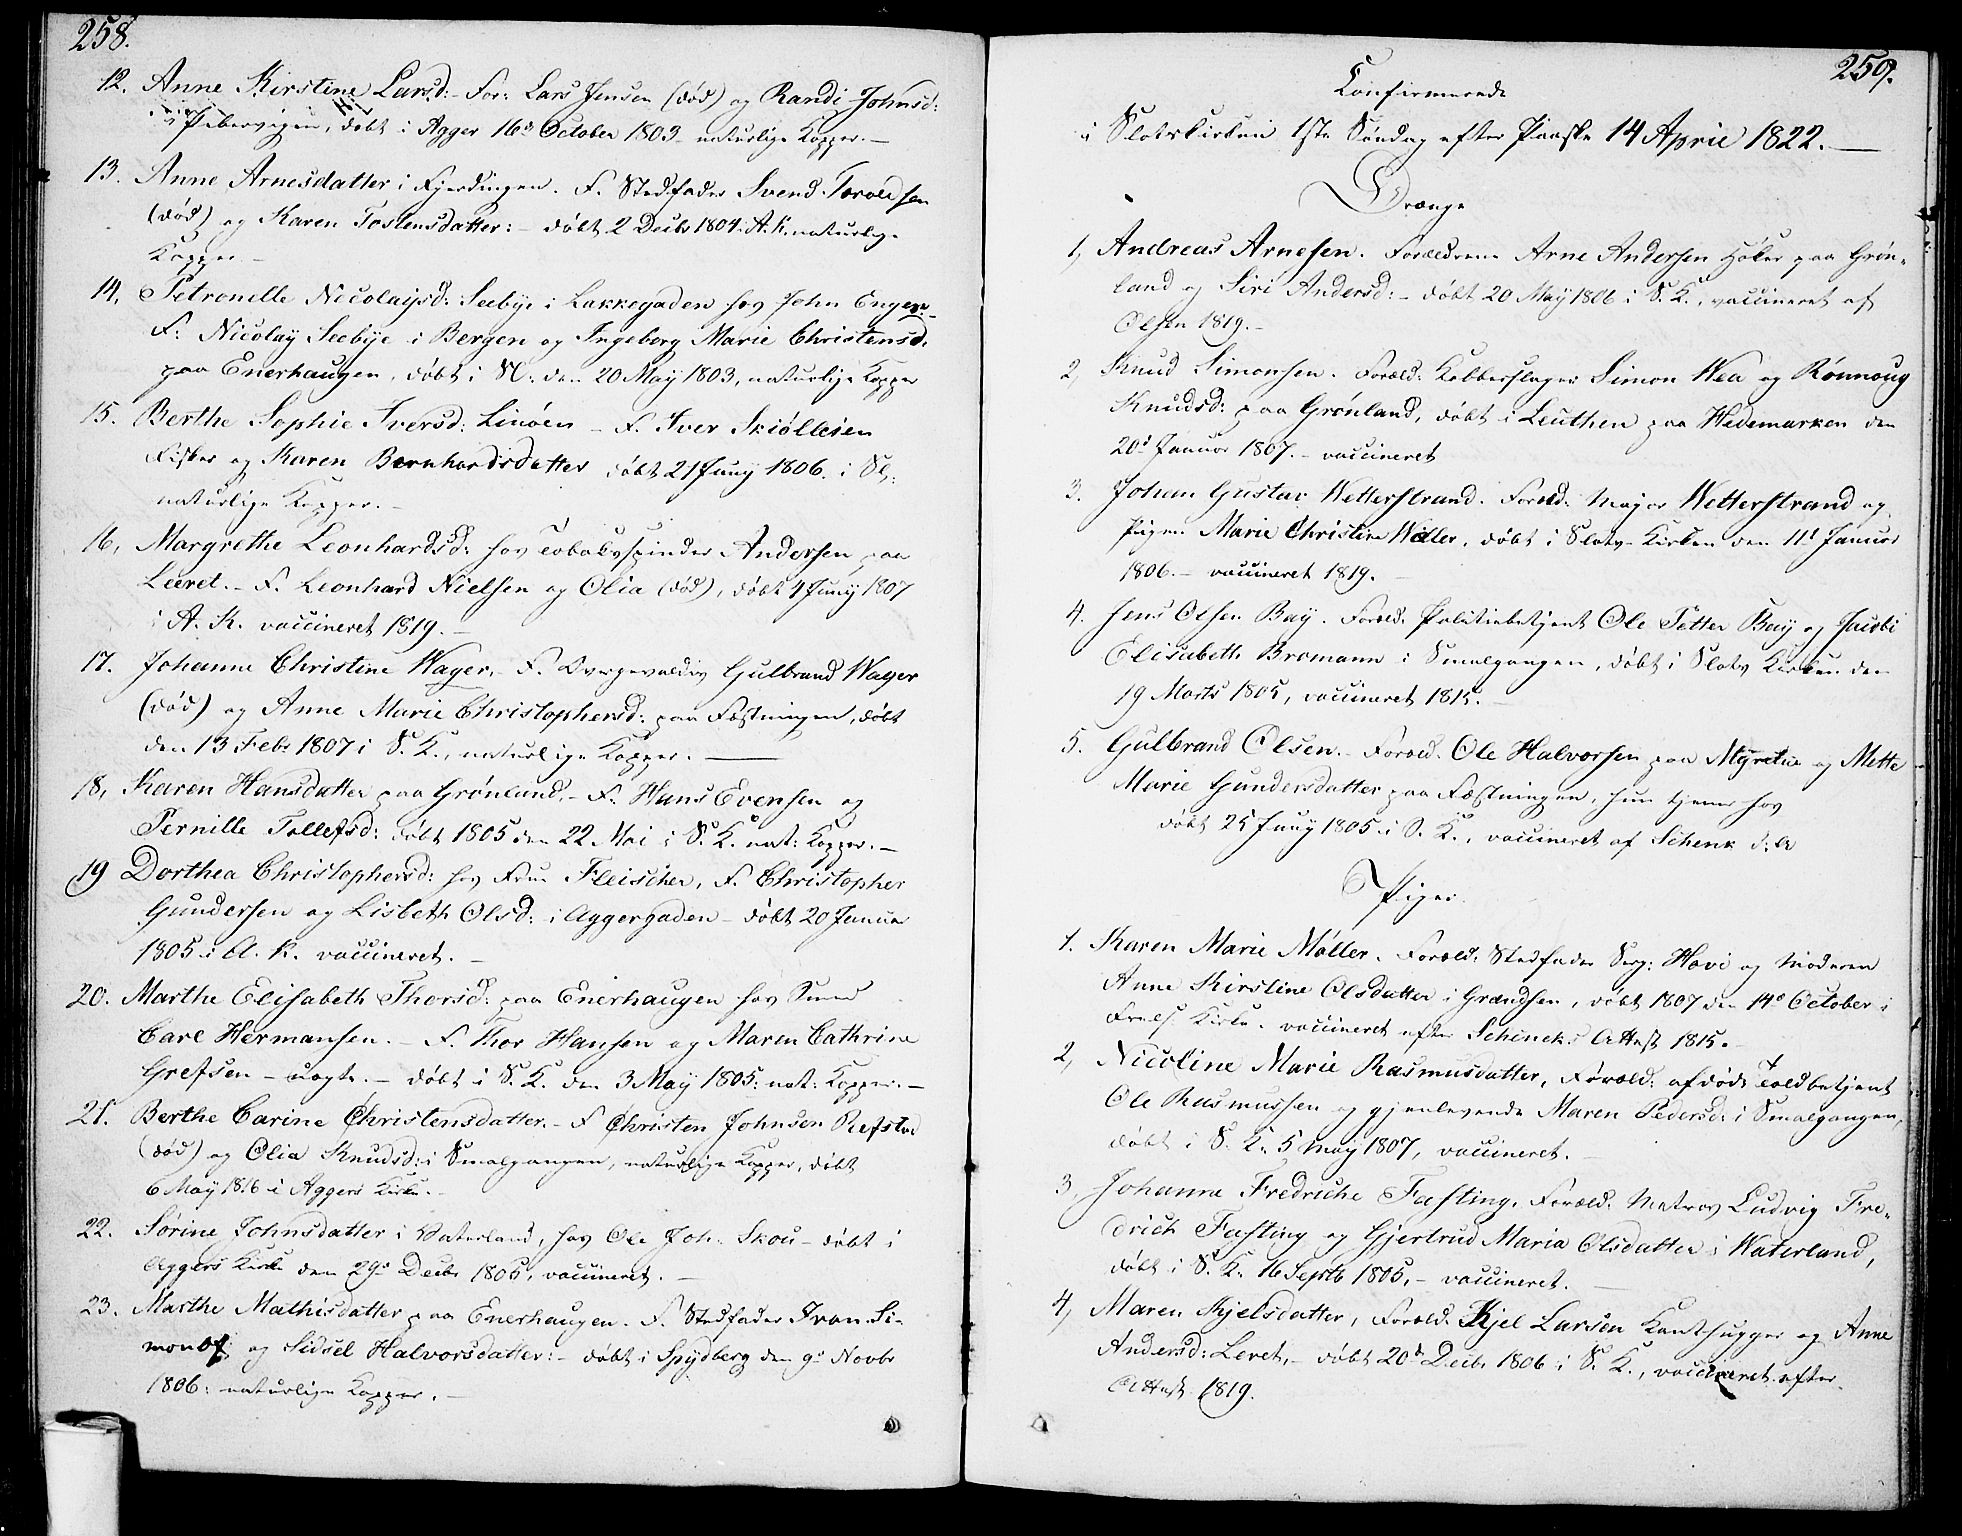 258.
12. Anne Kirstine Larsd: For: Lars Jensen (død) og Randi Johnsd:
i Pibervigen, døbt i Agger 16d October 1803 naturlige Kopper. —
13. Anne Arnesdatter i Fjerdingen. F. Stedfader Svend Toroldsen
(død) og Karen Tostensdatter: – døbt 2 Decbr 1804. A. K. naturlige
Kopper. –
14, Petronelle Nicolaysd: Seebye i Lakkegaden hos John Engen
F. Nicolay Seebye i Bergen og Ingeborg Marie Christensd.
paa Enerhaugen, døbt i Sl: den 20 May 1803, naturlige Kopper
15. Berthe Sophie Iversd: Linöen – F. Iver Skiöllesen
Fisker og Karen Bernhardsdatter døbt 21 Juny 1806. i Sl:
naturlige Kopper. –
16, Margrethe Leonhardsd: hos Tobakspinder Andersen paa
Leeret. – F. Leonhard Nielsen og Olia (død), døbt 4 Juny 1807
i A. K. vaccineret 1819. –
17. Johanne Christine Wager, – F. Gulbrand Wager
(død) og Anne Marie Christophersd: paa Fæstningen, døbt
den 13 Febr 1807 i S. K., naturlige Kopper. —
18, Karen Hansdatter paa Grønland, – F. Hans Evensen og
Pernille Tollefsd: døbt 1805 den 22 Mai i S. K. nat: Kopper. –
19 Dorthea Christophersd: hos Frue Fleischer, F. Christopher
Gundersen og Lisbeth Olsd: i Aggergaden – døbt 20 Januar
1805 i A. K. vaccineret. –
20. Marthe Elisabeth Thorsd: paa Enerhaugen hos Smed
Carl Hermansen. – F. Thor Hansen og Maren Cathrine
Grefsen – uægte. – døbt i S. K. den 3 May 1805: nat: Kopper. –
21. Berthe Carine Christensdatter. – F Christen Johnsen Refstad
(død) og Olia Knudsd: i Smalgangen, naturlige Kopper, døbt
6 May 1806 i Aggers Kirke. –
22. Sørine Johnsdatter i Vaterland, hos Ole Joh: Skou – døbt i
Aggers Kirke den 29d Decbr 1805, vaccineret. –
23. Marthe Mathisdatter paa Enerhaugen. F. Stedfader Iver Si-
monsf og Sidsel Halvorsdatter: – døbt i Spydberg den 9d Novbr
1806: naturlige Kopper. –
259.
Confirmerede
i Slotskirken 1ste Søndag efter Paaske 14 April 1822. —
Drenge
1, Andreas Arnesen. Forældrene Arne Andersen Høker paa Grøn-
land og Siri Andersd: – døbt 20 May 1806 i S. K., vaccineret af
Olsen 1819. –
2, Knud Simonsen. Foræld: Kobberslager Simon Wea og Rønnoug
Knudsd: paa Grønland, døbt i Leuthen paa Hedemarken den
20d Januar 1807. – vaccineret
3. Johan Gustav Wetterstrand. Foræld: Major Wetterstrand og
Pigen Marie Christine Weller, døbt i Slots-Kirken den 11d Januar
1806. – vaccineret 1819. –
4. Jens Olsen Bay. Foræld. Politiebetjent Ole Petter Bay og Jacobi
Elisabeth Bromann i Smalgangen, døbt i Slots Kirken den
19 Marts 1805, vaccineret 1815. –
5. Gulbrand Olsen. – Foræld. Ole Halvorsen paa Myretue og Mette
Marie Gundersdatter paa Fæstningen, hun tjener hos
døbt 25 Juny 1805 i S. K., vaccineret af Schenk
Piger.
1. Karen Marie Møller. Foræld: Stedfader Serg: Hovi og Moderen
Anne Kirstine Olsdatter i Grændsen, døbt 1807 den 14d October i
Frels: Kirke. vaccineret efter Schencks Attest 1815. –
2, Nicoline Marie Rasmusdatter, Foræld: afdøde Toldbetjent
Ole Rasmussen og gjenlevende Maren Pedersd: i Smalgangen,
døbt i S. K. 5 May 1807, vaccineret. –
3, Johanne Fredriche Fasting, Foræld. Matros Ludvig Fre-
drich Fasting og Gjertrud Maria Olsdatter i Waterland,
døbt i S. K. 16 Septb 1805, – vaccineret. —
4, Maren Kjelsdatter, Foræld. Kjel Larsen Kanthugger og Anne
Andersd: Leret, – døbt 20d Decbr 1806 i S. K., vaccineret efter
Attest 1819.